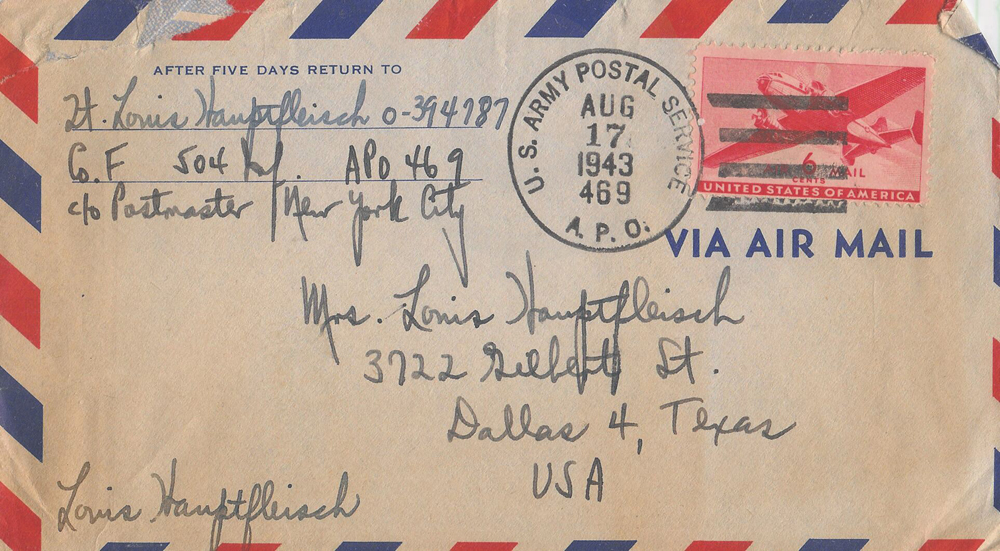 AFTER FIVE DAYS RETURN TO
Lt. Louis Hauptfleisch 0-394787
Co. F 504 Inf. APO 469
c/o Postmaster New York City
U. S. ARMY POSTAL SERVICE
AUG
17
1943
469
A. P. O.
6
CENTS
MAIL
UNITED STATES OF AMERICA
VIA AIR MAIL
Mrs. Louis Hauptfleisch
3722 Gilbert St.
Dallas 4, Texas
USA
Louis Hauptfleisch